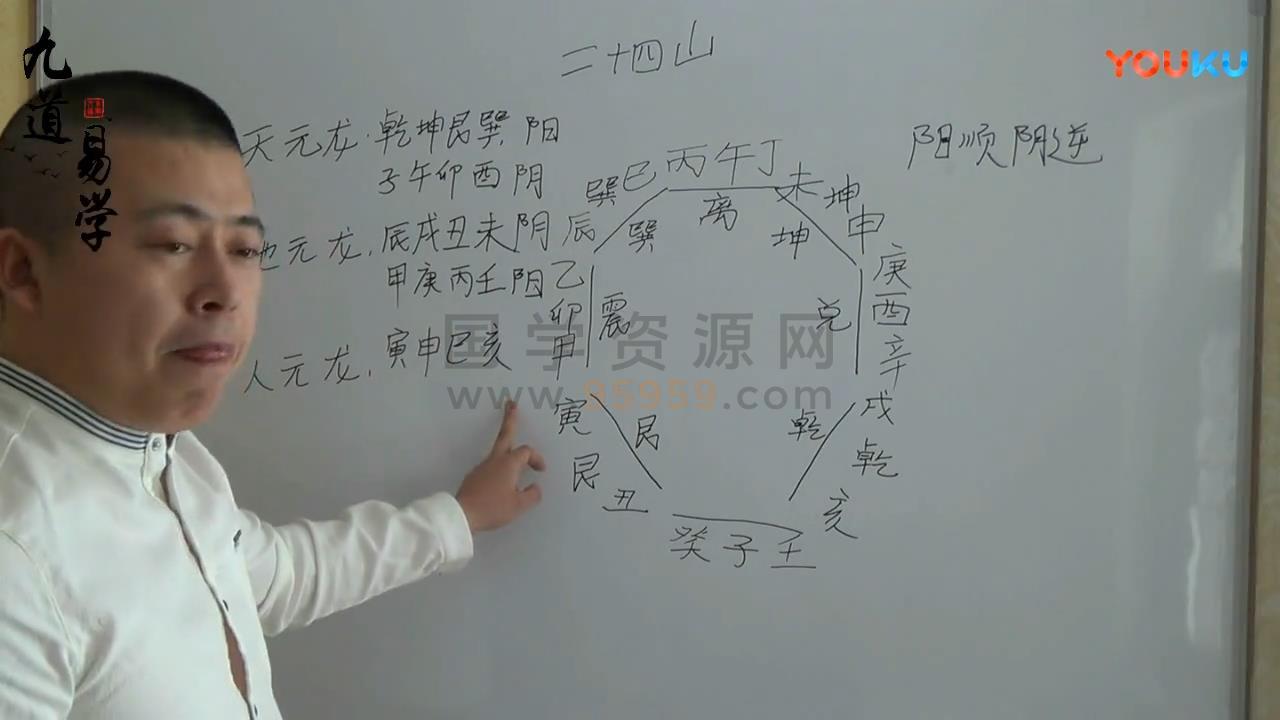 九道
易学
YOUKU
二十四山
阳顺阴逆
天元龙.乾坤艮巽 阳
子午卯酉 阴
地元龙.辰戌丑未 阴
甲庚丙壬 阳
人元龙.寅申巳亥
巽 巳 丙 午 丁 未 坤 申
辰 巽 离 坤
乙 庚
卯 震 兑 酉
甲 辛
寅 艮 乾 戌
艮 乾
丑 亥
癸 子 壬
国学资源网
www.95959.com